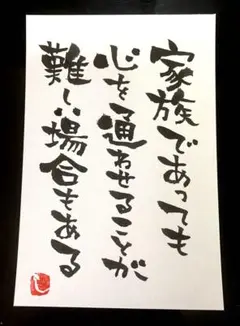 家族であっても
心を通わせることが
難しい場合もある